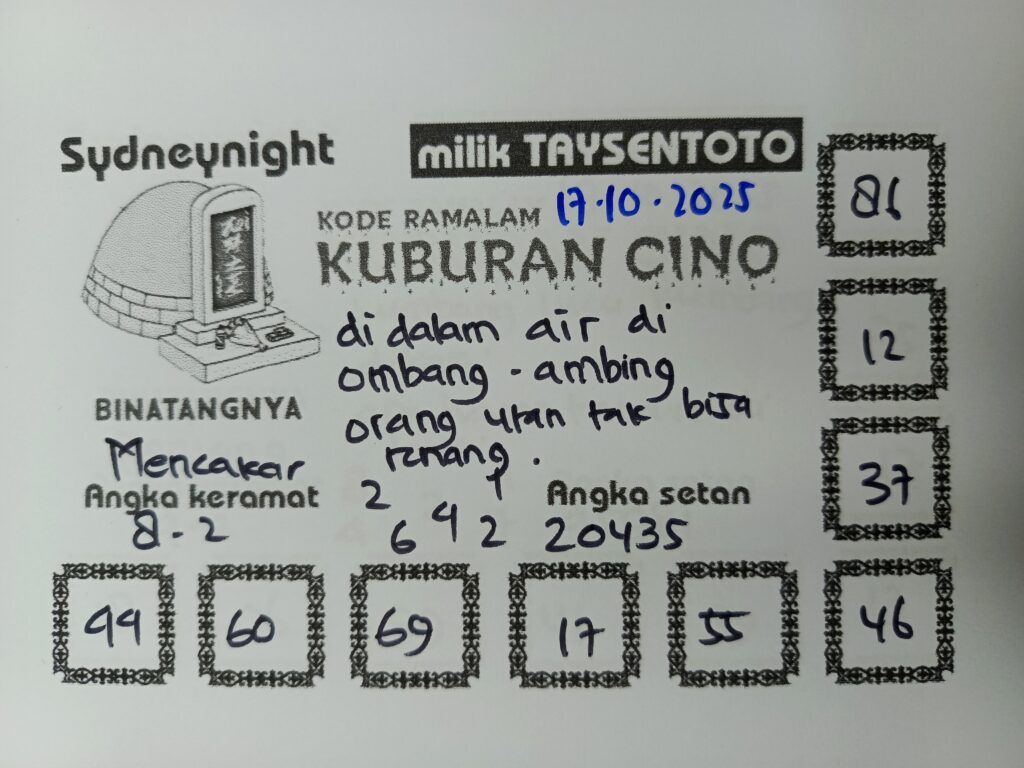 Sydneynight
milik TAYSENTOTO
KODE RAMALAM 17.10.2025
KUBURAN CINO
di dalam air di
ombang - ambing
orang utan tak bisa
renang.
BINATANGNYA
Mencakar
Angka keramat
8 - 2
2 1
6 4 2
Angka setan
20435
86
12
37
99 60 69 17 55 46